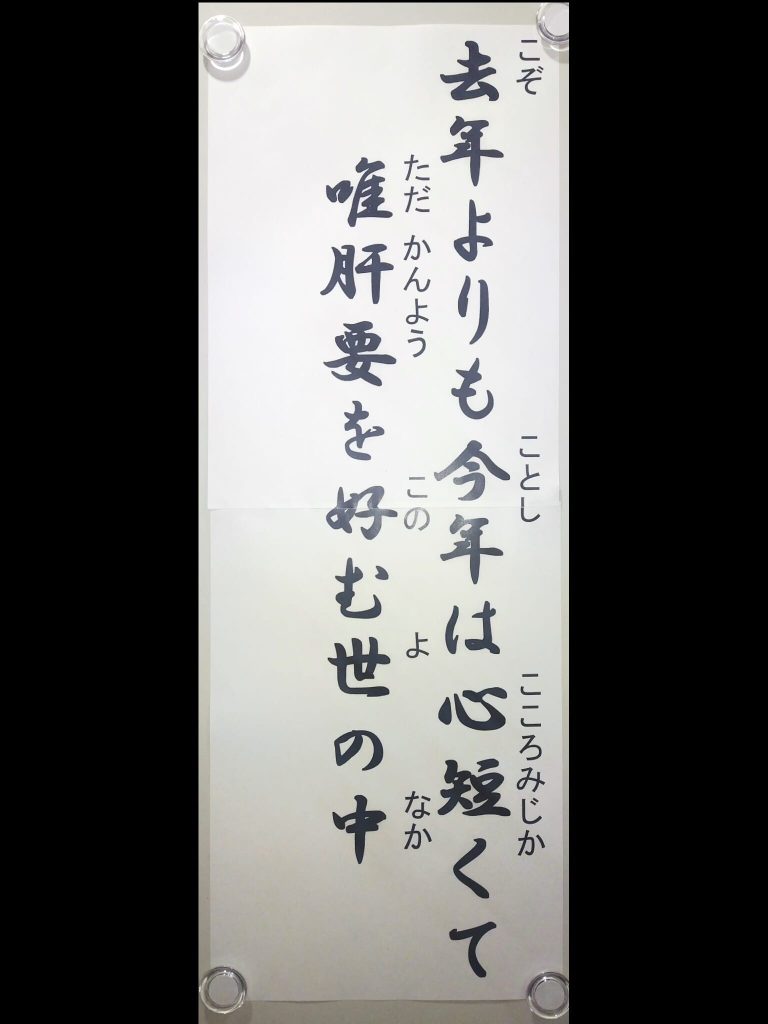 去年よりも今年は心短くて
こぞ ことし こころみじか
唯肝要を好む世の中
ただ かんよう この よ なか